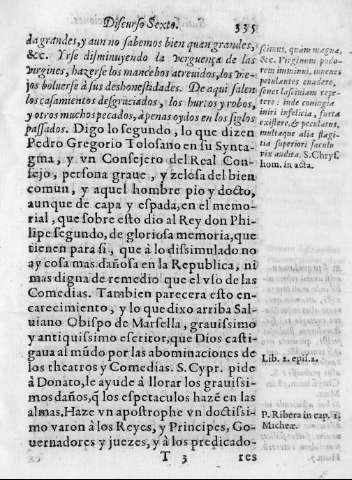 Discurso Sexto. 335
da grandes, y aun no sabemos bien quan grandes,
&c. Yrse disminuyendo la verguença de las
virgines, hazerse los mancebos atreuidos, los vie-
jos boluerse à sus deshonestidades. De aqui salen
los casamientos desgraciados, los hurtos y robos,
y otros muchos pecados, à penas oydos en los siglos
passados. Digo lo segundo, lo que dizen
Pedro Gregorio Tolosano en su Synta-
gma, y vn Consejero del Real Con-
sejo, persona graue, y zelosa del bien
comun, y aquel hombre pio y docto,
aunque de capa y espada, en el memo-
rial, que sobre esto dio al Rey don Phi-
lipe segundo, de gloriosa memoria, que
tienen para si, que à lo dissimulado no
ay cosa mas dañosa en la Republica, ni
mas digna de remedio que el vso de las
Comedias. Tambien parecera esto en-
carecimiento, y lo que dixo arriba Sal-
uiano Obispo de Marsella, grauissimo
y antiquissimo escritor, que Dios casti-
gaua al mūdo por las abominaciones de
los theatros y Comedias. S. Cypr. pide
à Donato, le ayude à llorar los grauissi-
mos daños, q̄ los espetaculos hazē en las
almas. Haze vn apostrophe vn doctissi-
mo varon à los Reyes, y Principes, Go-
uernadores y juezes, y à los predicado-
T 3 res
scimus, quàm magna,
&c. Virginum pudo-
rem imminui, iuuenes
petulantes euadere,
senes lasciuiam repe-
tere: inde coniugia
iniri infelicia, furta
existere, & peculatus,
multaque alia flagi-
tia superiori sæculo
vix audita. S. Chrys.
hom. in acta.
Lib. 2. epist. 2.
P. Ribera in cap. 1.
Micheæ.